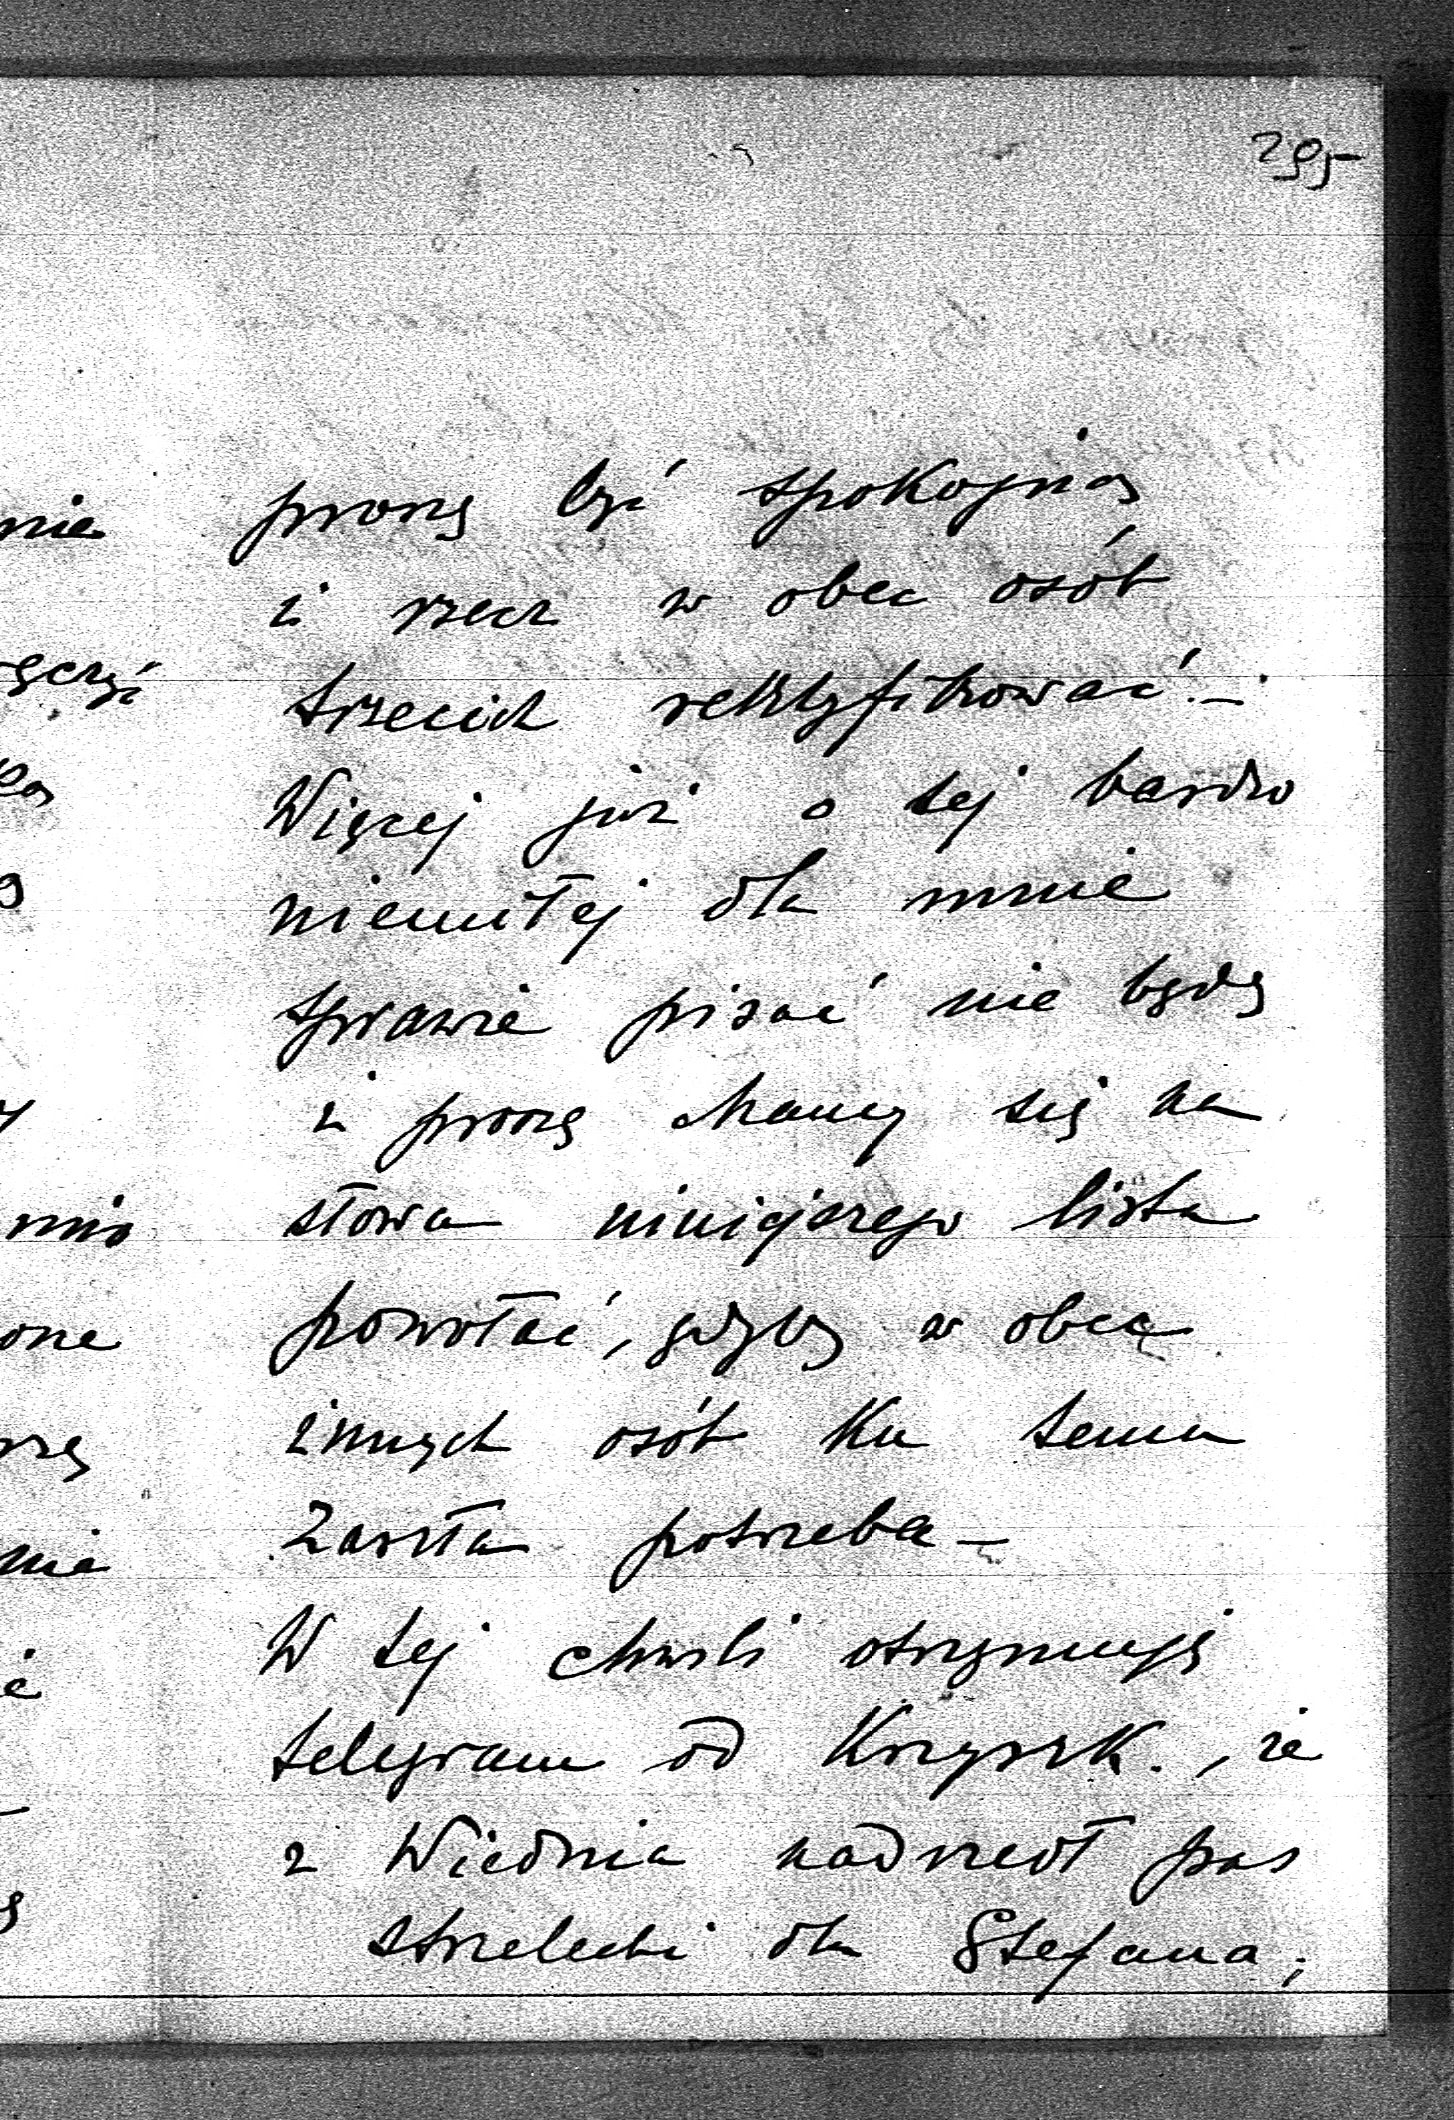 295
proszę być spokojną
i rzecz w obec osób
trzecich rektyfikować. –
Więcej już o tej bardzo
niemiłej dla mnie
sprawie pisać nie będę
i proszę Mamy się na
słowa niniejszego lista
powołać, gdyby w obec
innych osób ku temu
zaszła potrzeba –
W tej chwili otrzymuję
telegram od Krzyszk., że
z Wiednia nadszedł pas
strzelecki dla Stefana,
nie
one
nie